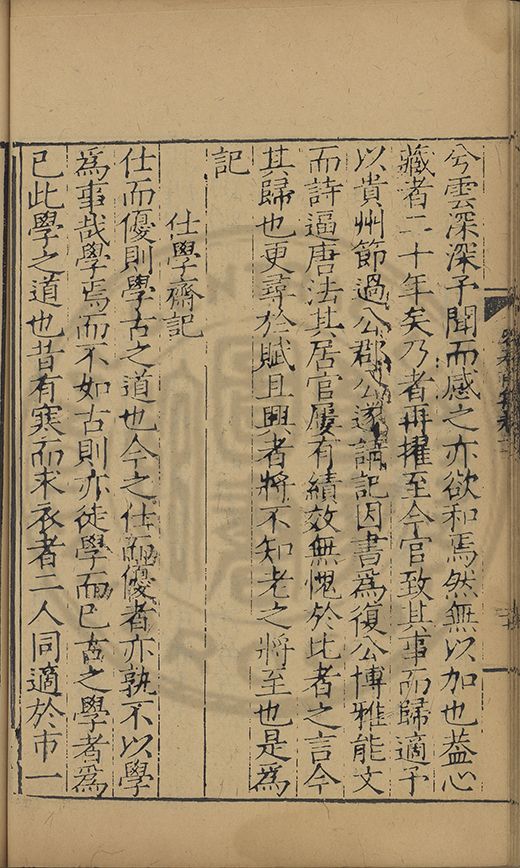 兮雲深深予聞而感之亦欲和焉然無以加也葢心
藏者二十年矣乃者再擢至今官致其事而歸適予
以貴州節過公郡公遂請記因書爲復公博雅能文
而詩逼唐法其居官屢有績效無愧於比者之言今
其歸也更尋於賦且興者將不知老之將至也是爲
記
仕學齋記
仕而優則學古之道也今之仕而優者亦孰不以學
爲事哉學焉而不如古則亦徒學而已古之學者爲
已此學之道也昔有寒而求衣者二人同適於市一